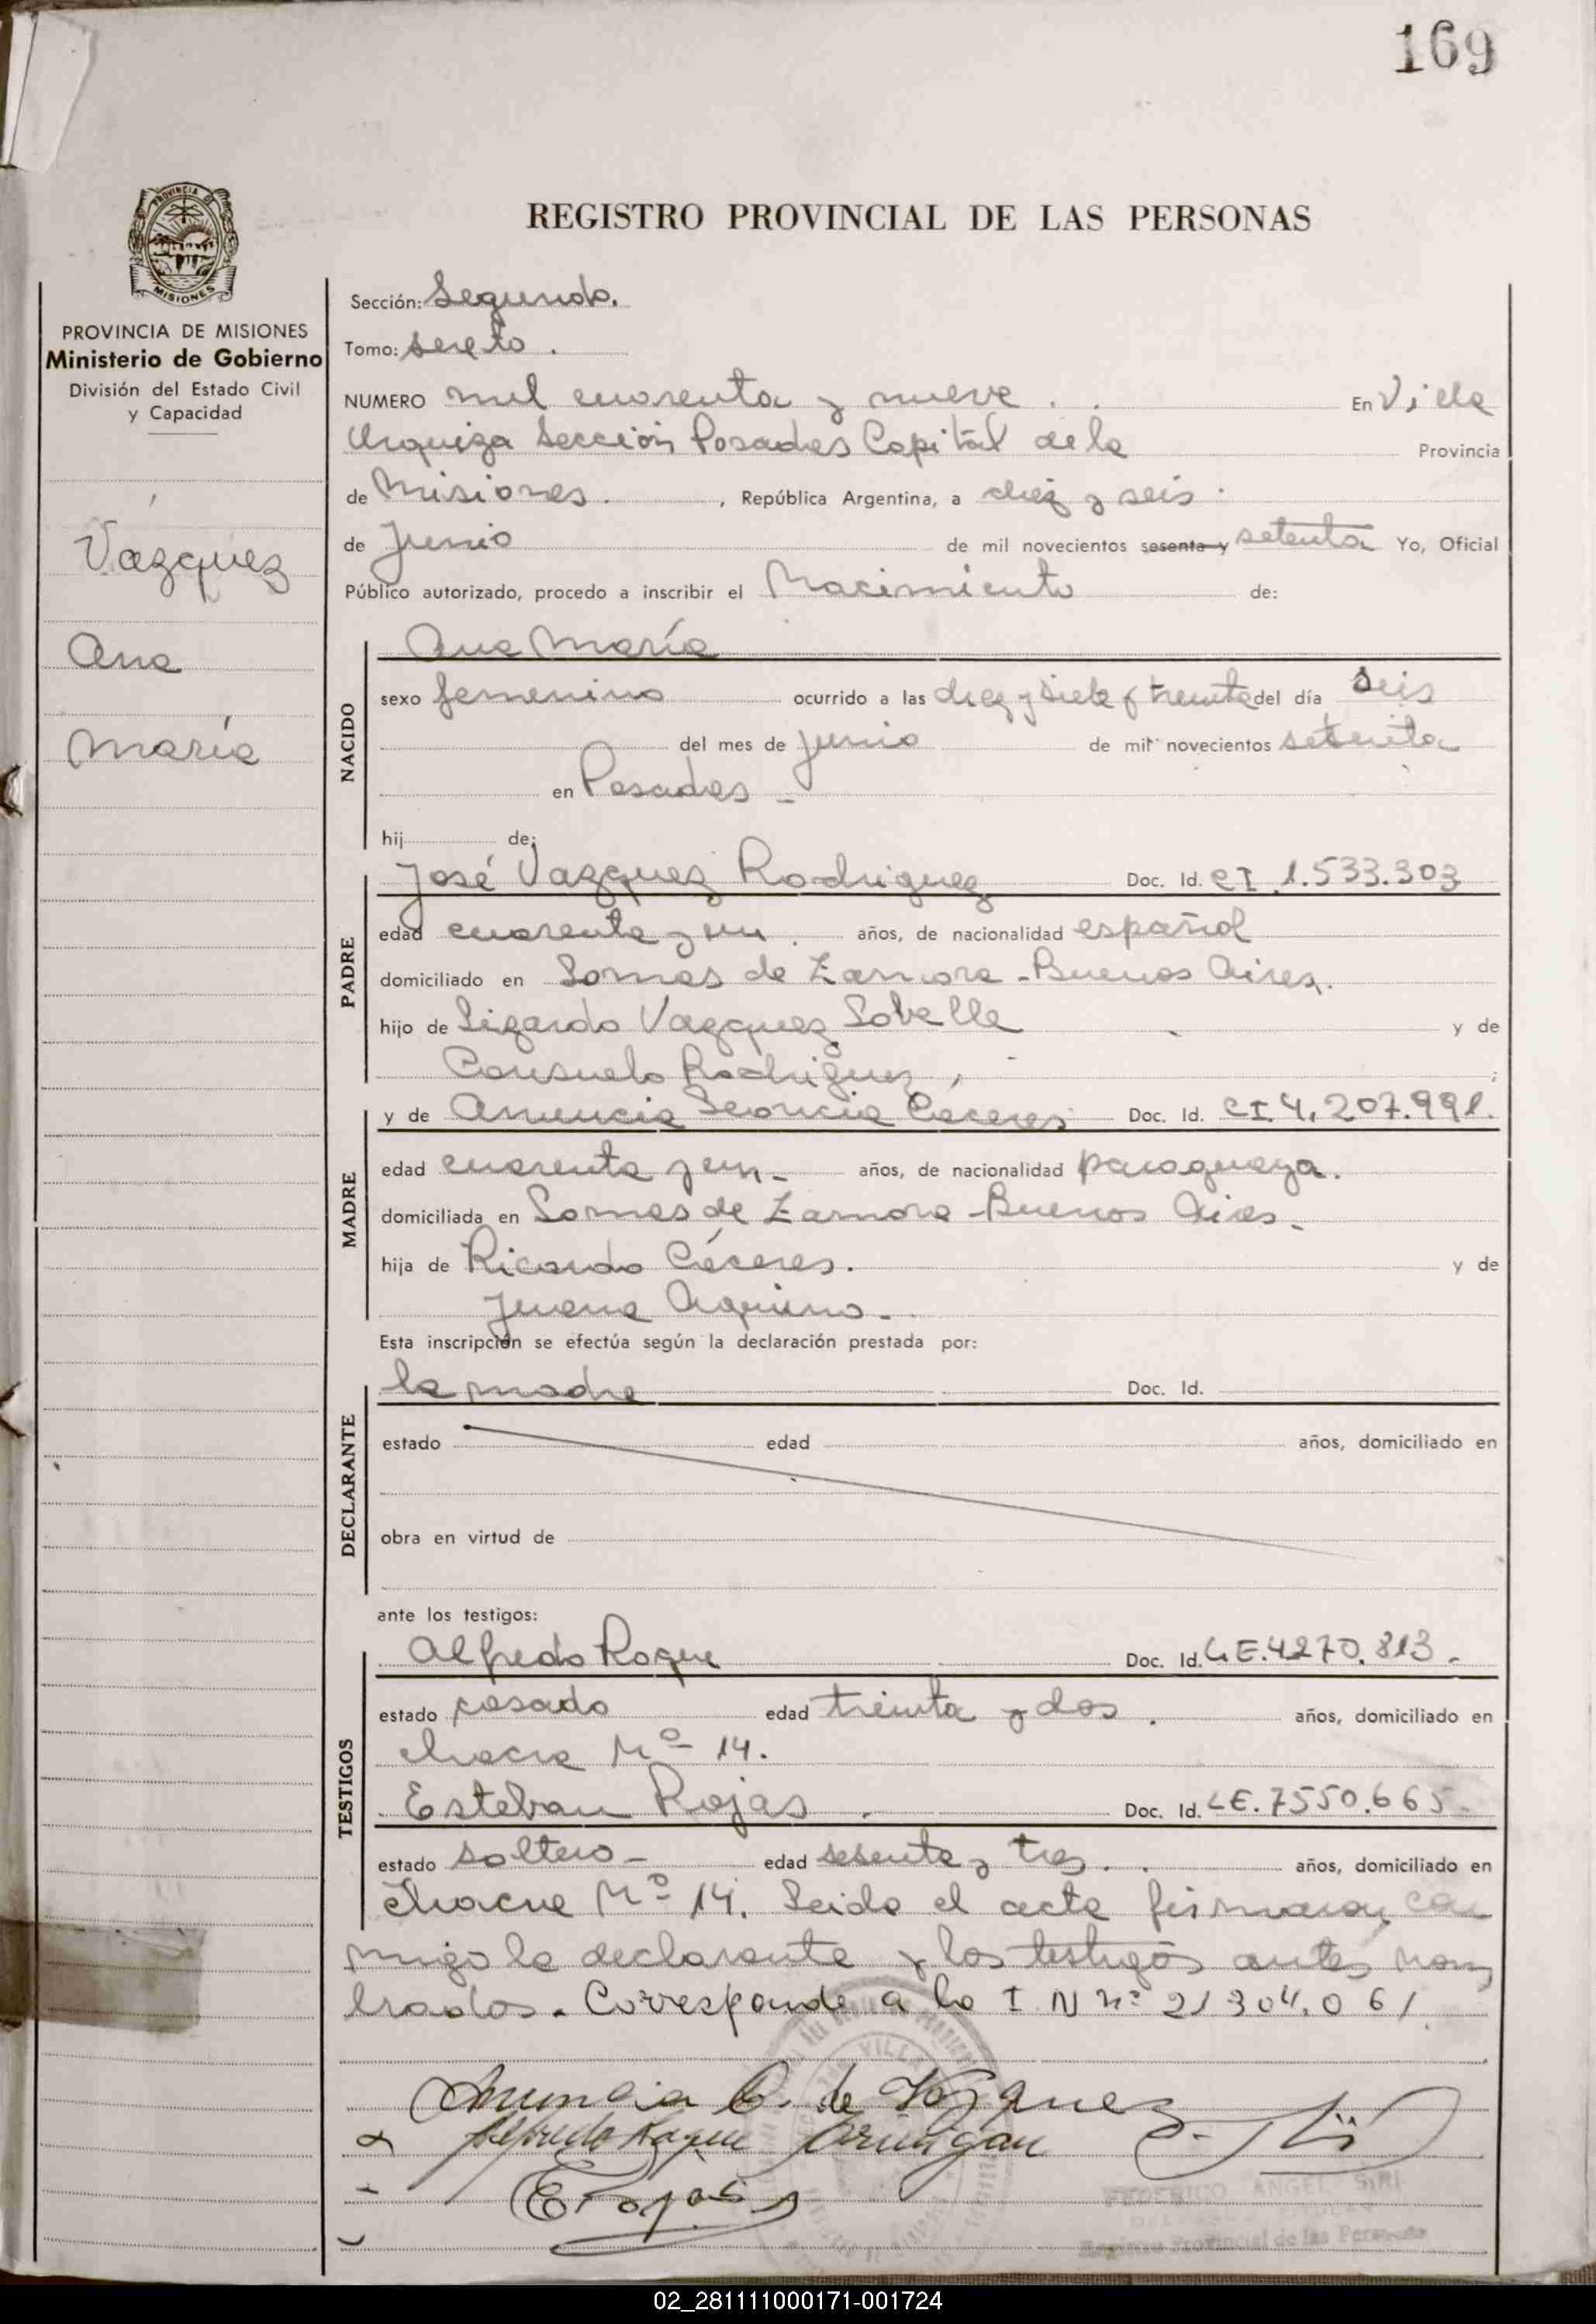 169
REGISTRO PROVINCIAL DE LAS PERSONAS
PROVINCIA DE MISIONES
Ministerio de Gobierno
División del Estado Civil
y Capacidad
Vázquez
Ana
María
Sección: Segunda.
Tomo: sexto.
NUMERO mil cuarenta y nueve . . En Villa
Urquiza Sección Posadas Capital de la Provincia
de Misiones. , República Argentina, a diez y seis
de Junio de mil novecientos sesenta y setenta Yo, Oficial
Público autorizado, procedo a inscribir el Nacimiento de:
NACIDO
Ana María
sexo femenino ocurrido a las diez y siete y treinta del día seis
del mes de junio de mil novecientos setenta
en Posadas -
hij de:
PADRE
José Vazquez Rodriguez Doc. Id. CI 1.533.303
edad cuarenta y un . años, de nacionalidad español
domiciliado en Lomas de Zamora - Buenos Aires.
hijo de Lizardo Vazquez Sobelle y de
Consuelo Rodriguez, ;
MADRE
y de Anuncia Leoncia Cáceres Doc. Id. CI. 4.207.991.
edad cuarenta y un - años, de nacionalidad paraguaya.
domiciliada en Lomas de Zamora - Buenos Aires -
hija de Ricardo Cáceres. y de
Juana Aquino -
Esta inscripción se efectúa según la declaración prestada por:
DECLARANTE
la madre Doc. Id.
estado edad años, domiciliado en
obra en virtud de
ante los testigos:
TESTIGOS
Alfredo Roque Doc. Id. LE. 4270.813 -
estado casado edad treinta y dos . años, domiciliado en
chacra Nº 14.
Esteban Rojas . Doc. Id. LE. 7550.665 -
estado soltero - edad sesenta y tres . . años, domiciliado en
chacra Nº 14. Leida el acta firmaron con
migo la declarante y los testigos antes nom
brados. Corresponde a la I N nº 21304.061
Anuncia C. de Vazquez
Alfredo Roque
E Rojas
FEDERICO ANGEL SIRI
Registro Provincial de las Personas
02_281111000171-001724